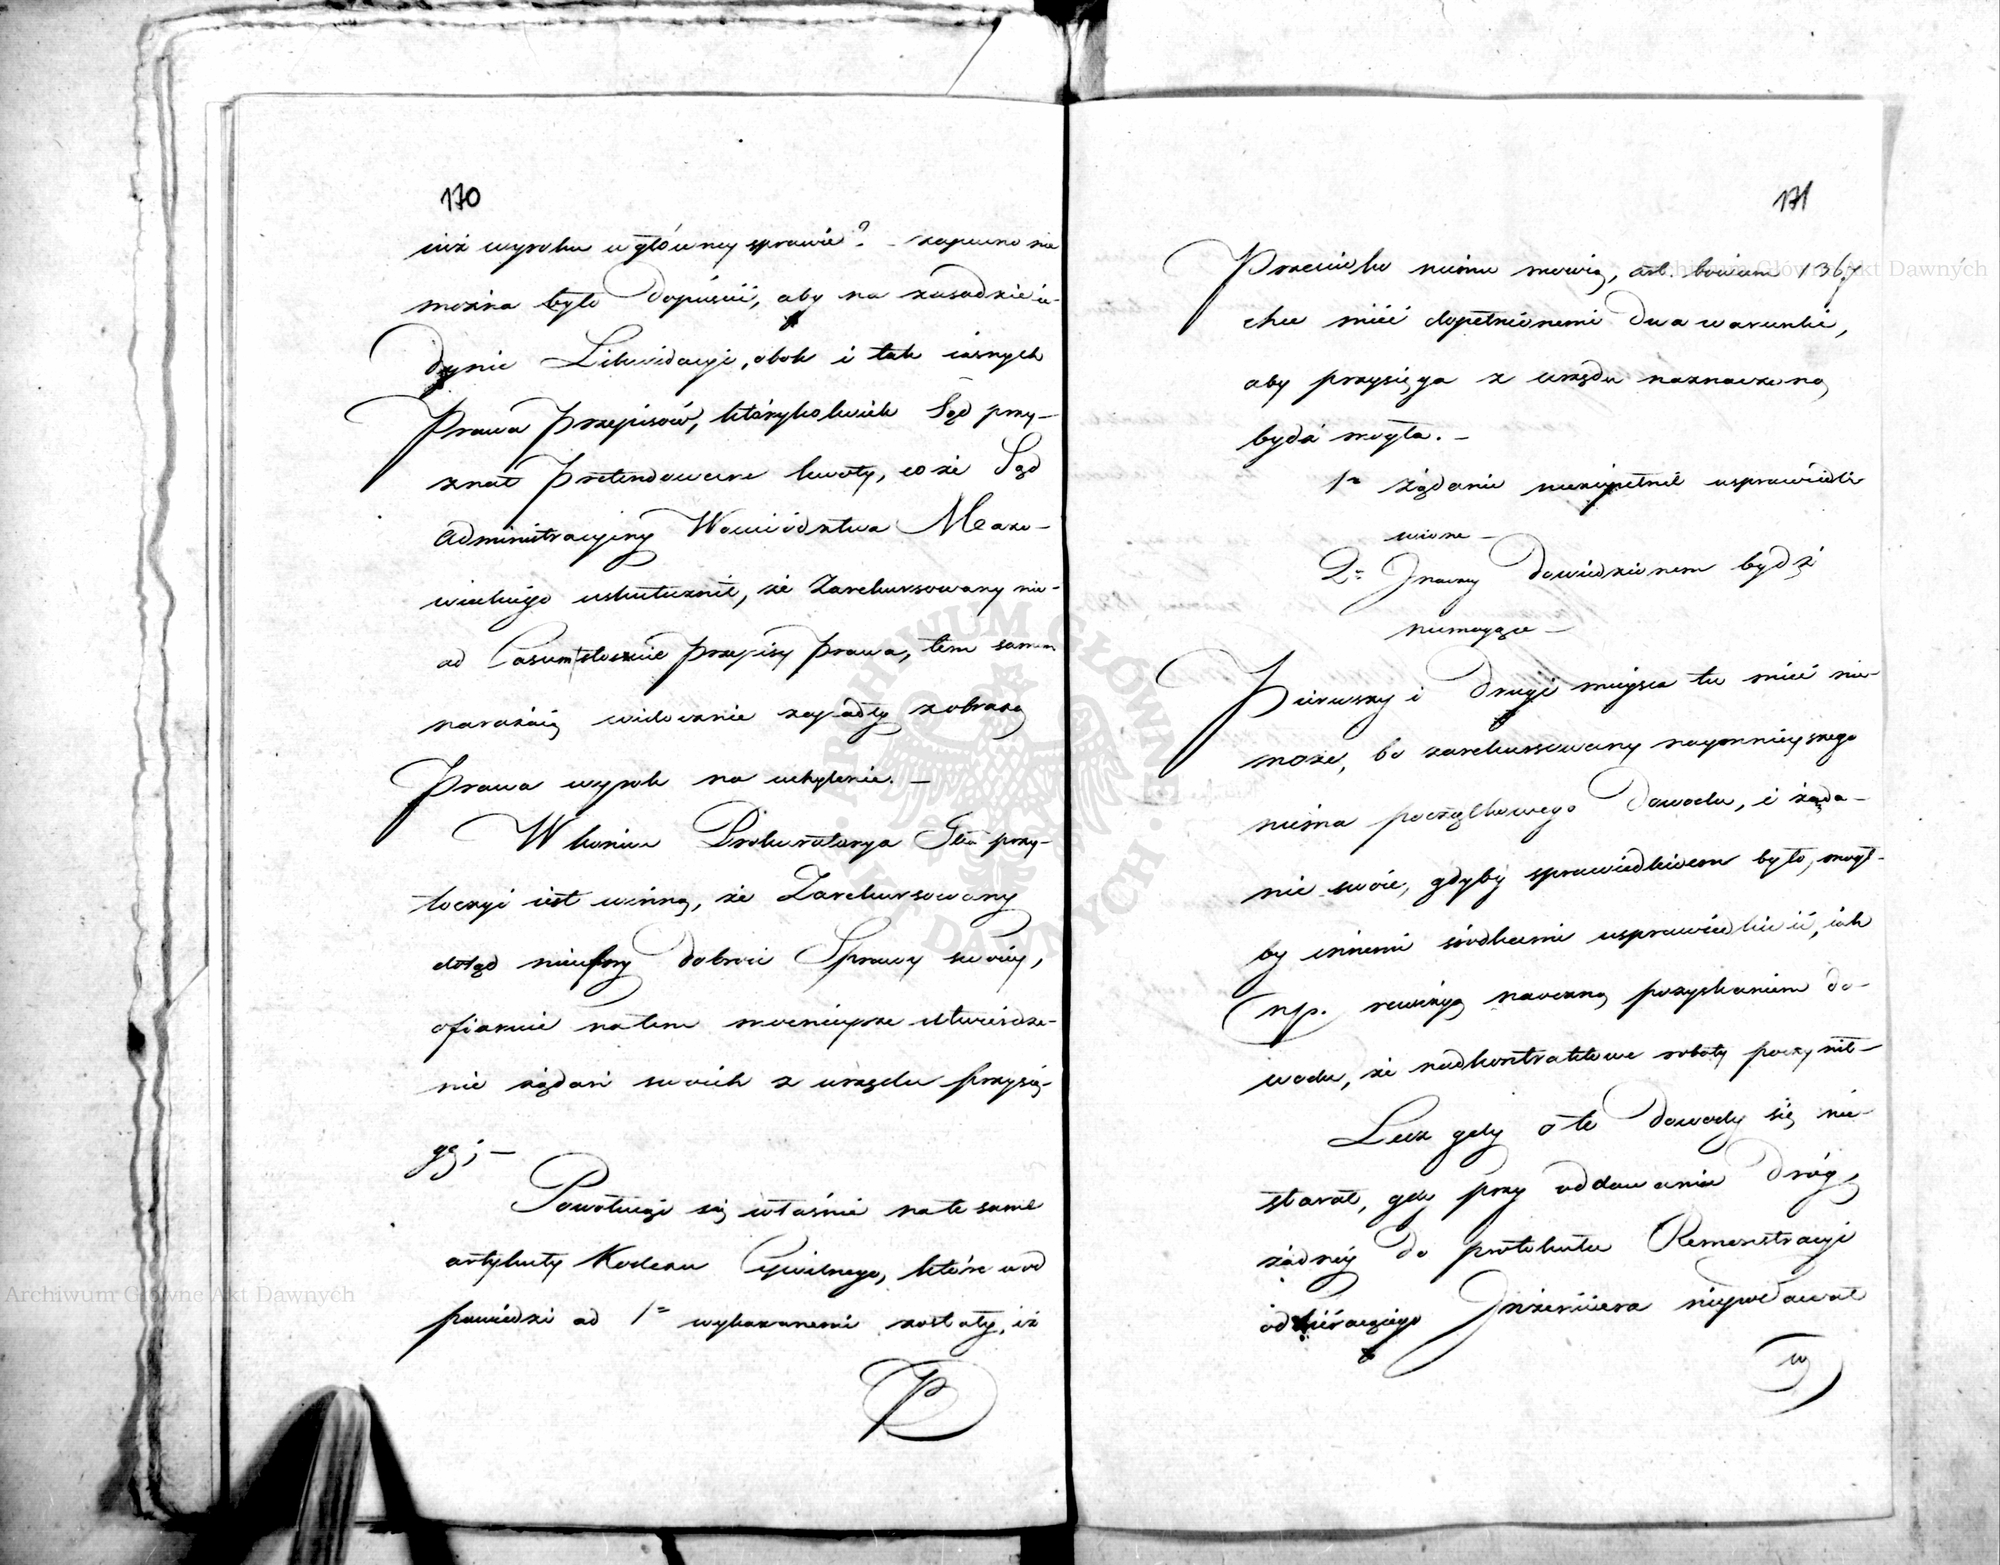 170
iuż wyroku w główney sprawie? – zapewno nie
można było dopuścić, aby na zasadzie ie-
dynie Likwidacyi, obok i tak iasnych
Prawa przepisów, którykolwiek Sąd przy-
znał pretendowane kwoty, co że Sąd
Administracyiny Woiewództwa Mazo-
wieckiego uskutecznił, że Zarekursowany nie-
ad Casum stosuie przepisy prawa, tem samem
narażaią widocznie zapadły z obrazą
Prawa wyrok na uchylenie. –
W końcu Prokuratorya Gła przy-
toczyć iest winną, że Zarekursowany
dotąd nieufny dobroci Sprawy swoiey,
ofiaruie na tem mocnieysze utwierdze-
nie żądań swoich z urzędu przysię-
gę; –
Powołuiąc się właśnie na te same
artykuły Kodexu Cywilnego, które w od
powiedzi ad 1º wykazanemi zostały, iż
P
171
Przeciwko niemu mowią, art. bowiem 1367
chce mieć dopełnionemi dwa warunki,
aby przysięga z urzędu naznaczoną
bydź mogła. –
1º żądanie niezupełnie usprawiedli-
wione –
2º Inaczey dowiedzionem bydź
niemogące –
Pierwszy i drugi mieysca tu mieć nie-
może, bo zarekursowany naymnieyszego
niema początkowego dowodu, i żąda-
nie swoie, gdyby sprawiedliwem było, mogł-
by innemi środkami usprawiedliwić, iak
np. rewizyą naoczną pozyskaniem do-
wodu, że nadkontraktowe roboty poczynił –
Lecz gdy o te dowody się nie-
starał, gdy przy oddawaniu dróg,
żadney do protokułu Remonstracyi
odbieraiącego Inżeniera niepodawał
w
Archiwum Główne Akt Dawnych
Archiwum Główne Akt Dawnych
ARCHIWUM GŁÓWNE AKT DAWNYCH